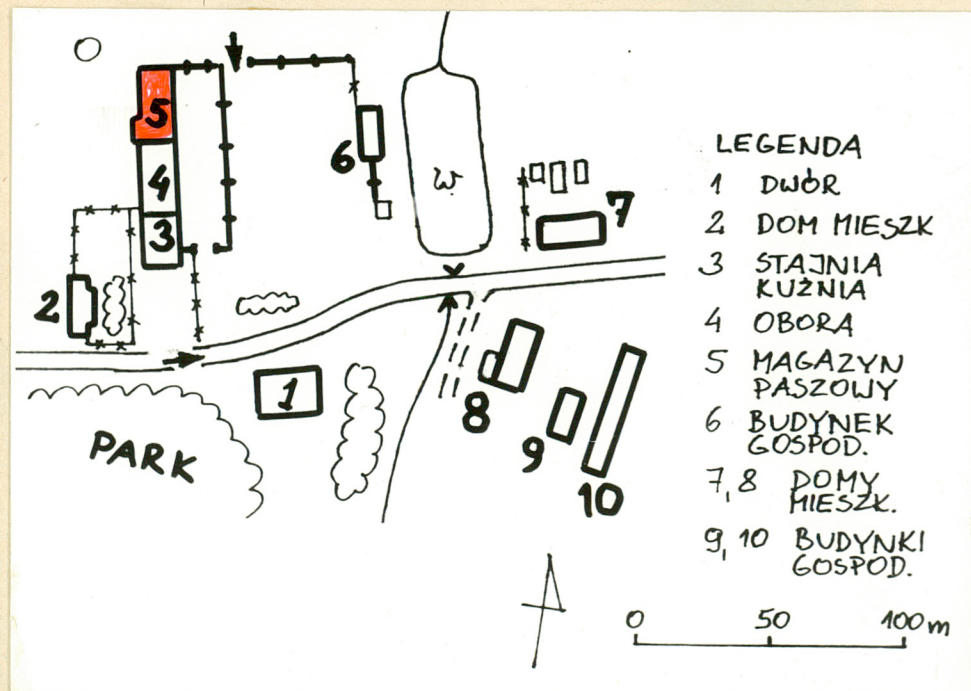 5
4
3
2
6
W.
7
1
PARK
8
9
10
LEGENDA
1 DWÓR
2 DOM MIESZK
3 STAJNIA
KUŹNIA
4 OBORA
5 MAGAZYN
PASZOWY
6 BUDYNEK
GOSPOD.
7,8 DOMY
MIESZK.
9,10 BUDYNKI
GOSPOD.
0 50 100m